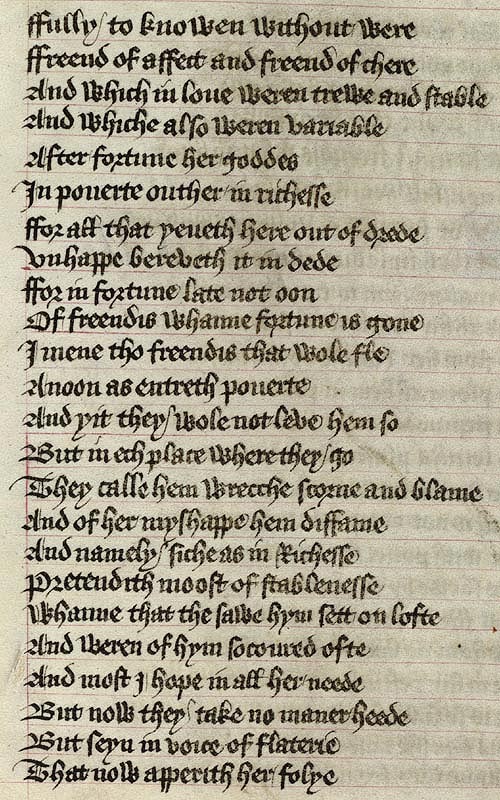 ffully / to knowen without were
ffreend of affect and freend of chere
And which in loue weren trewe and stable
And whiche also weren variable
After fortune her goddes
In pouerte outher in richesse
ffor all that yeueth here out of drede
Vnhappe bereveth it in dede
ffor in fortune late not oon
Of freendis whanne fortune is gone
I mene tho freendis that wole fle
Anoon as entreth pouerte
And yit they / wole not leve hem so
But in ech place where they / go
They calle hem wrecche scorne and blame
And of her myshappe hem diffame
And namely / siche as in Richesse
Pretendith moost of stablenesse
Whanne that the sawe hym sett on lofte
And weren of hym socoured ofte
And most I hope in all her neede
But now they / take no maner heede
But seyn in voice of flaterie
That now apperith her folye